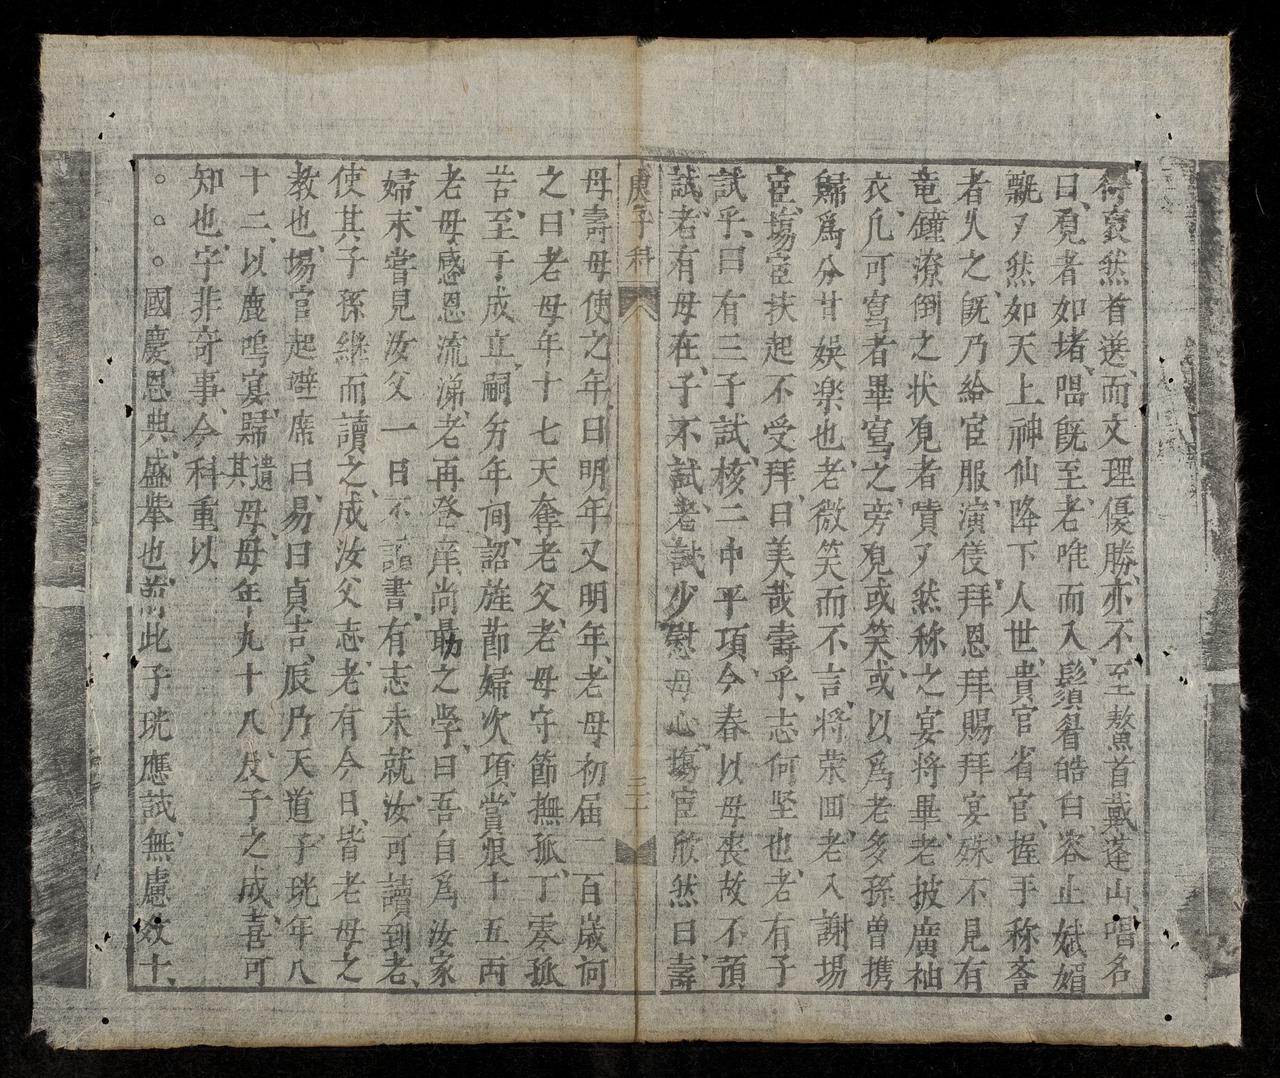 得裒然首選、而文理優勝、亦不至鰲首戴蓬山、唱名
日、覓者如堵、唱旣至、老唯而入、鬚眉皓白、容止娬媚
飄〻然如天上神仙降下人世、貴官省官、握手称耆
者久之、旣乃給宦服、演儀拜恩拜賜拜宴、殊不見有
竜鐘潦倒之状、覓者嘖〻然称之、宴將畢、老披廣袖
衣、凢可寫者畢寫之、旁覓或笑、或以爲老多孫曽携
歸爲分甘娛楽也、老微笑而不言、将荣囬、老入謝場
宦、塲宦扶起、不受拜、曰美哉壽乎、志何坚也、老有子
試乎、曰有三子試核二中平項、今春以母丧故不預
試、老有母在、子不試、老試少慰母心、塲宦欣然曰、壽
庚子科
三二
母壽母使之年、曰明年又明年、老母初届一百歲、问
之、曰老母年十七天奪老父、老母守節撫孤、丁零孤
苦、至于成立、嗣労年间、詔旌莭婦次項、賞銀十五两
老母感恩流涕、老再登庠、尚勗之學、曰吾自爲汝家
婦、未嘗見汝父一日不讀書、有志未就、汝可讀到老、
使其子孫継而讀之、成汝父志、老有今日、皆老母之
教也、場官起避席曰、易曰貞吉、辰乃天道、子珖年八
十二、以鹿鳴宴歸遺其母、母年九十八、及子之成、喜可
知也、字非竒事、今科重以
○○○國慶恩典盛举也、前此子珖應試無慮数十、